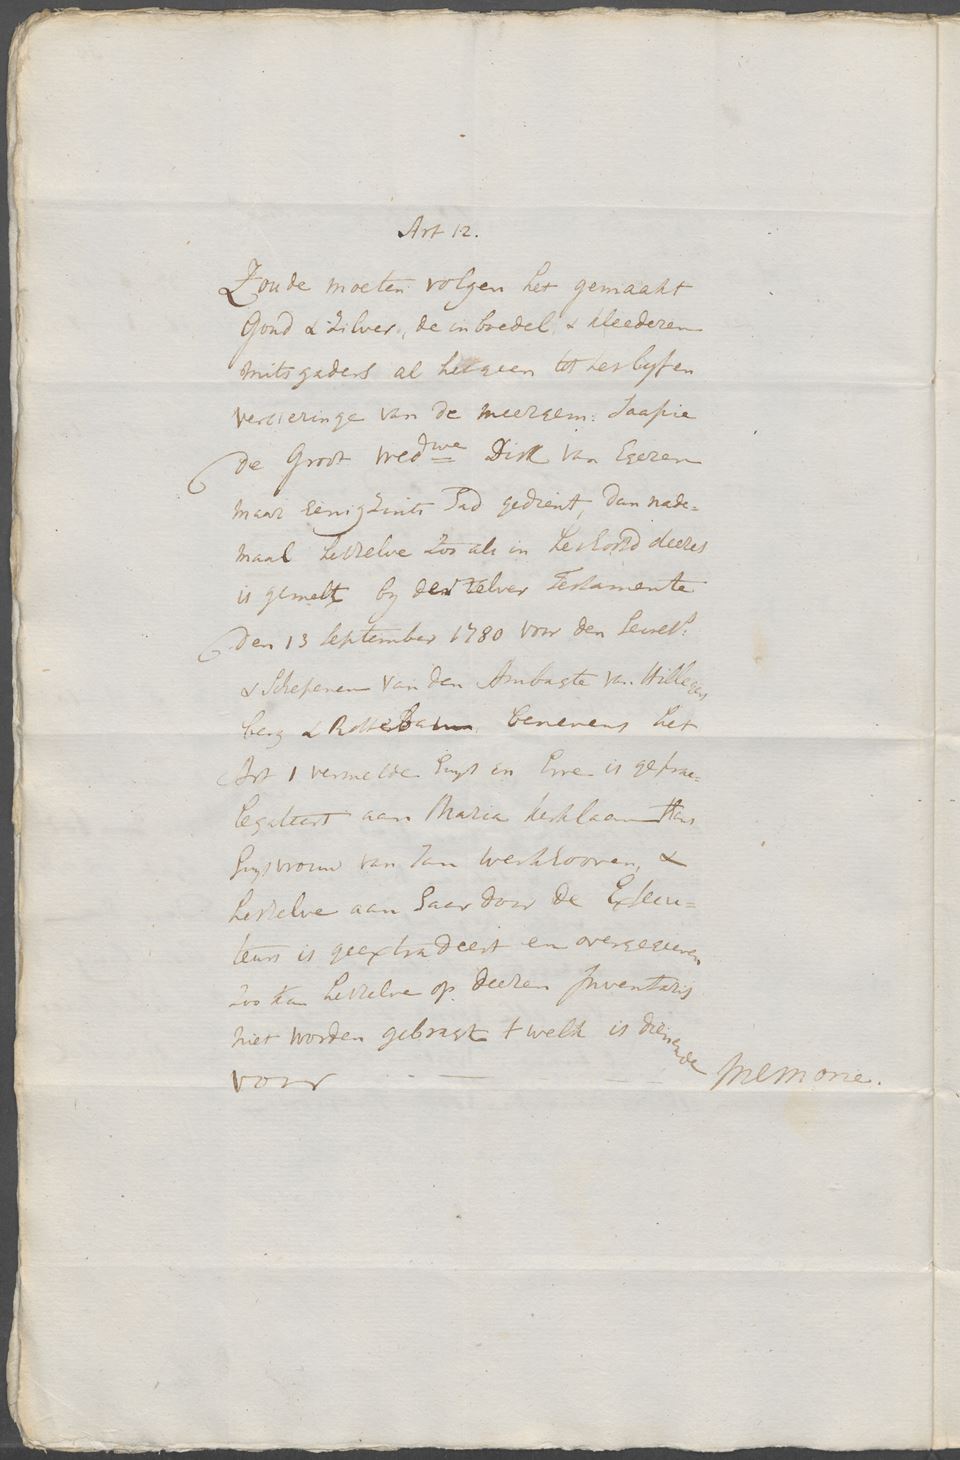 Art 12.
Zoude moeten volgen het gemaakt
Goud & Zilver, de inboedel & kleederen
mitsgaders al hetgeen tot het lyf en
vercieringe van de meergem: Jaapie
de Groot wed:we Dirk van Egeren
maar eenigzints had gedient, dan nade=
maal hetzelve zoo als in het hoofd deezes
is gemelt by derzelver Testamente
den 13 September 1780 voor den Secret:
& Schepenen van den Ambagte van Hillegers
berg & Rotteban, benevens het
Art 1 vermelde huys en Erve is gepræ=
legateert aan Maria
huysvrouw van Jan Werkhooven, &
hetzelve aan haar door de Execu=
teurs is geextradeert en overgegeven
zoo kan hetzelve op deezen Inventaris
niet worden gebragt t welk is dienende
voor — — — Memorie.